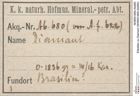 K. k. naturh. Hofmus. Mineral.-petr. Abt.
Akq.-Nr. Ab 680 (von A. f.
Name Diamant
0·1836 gr =
Fundort Brasilien?